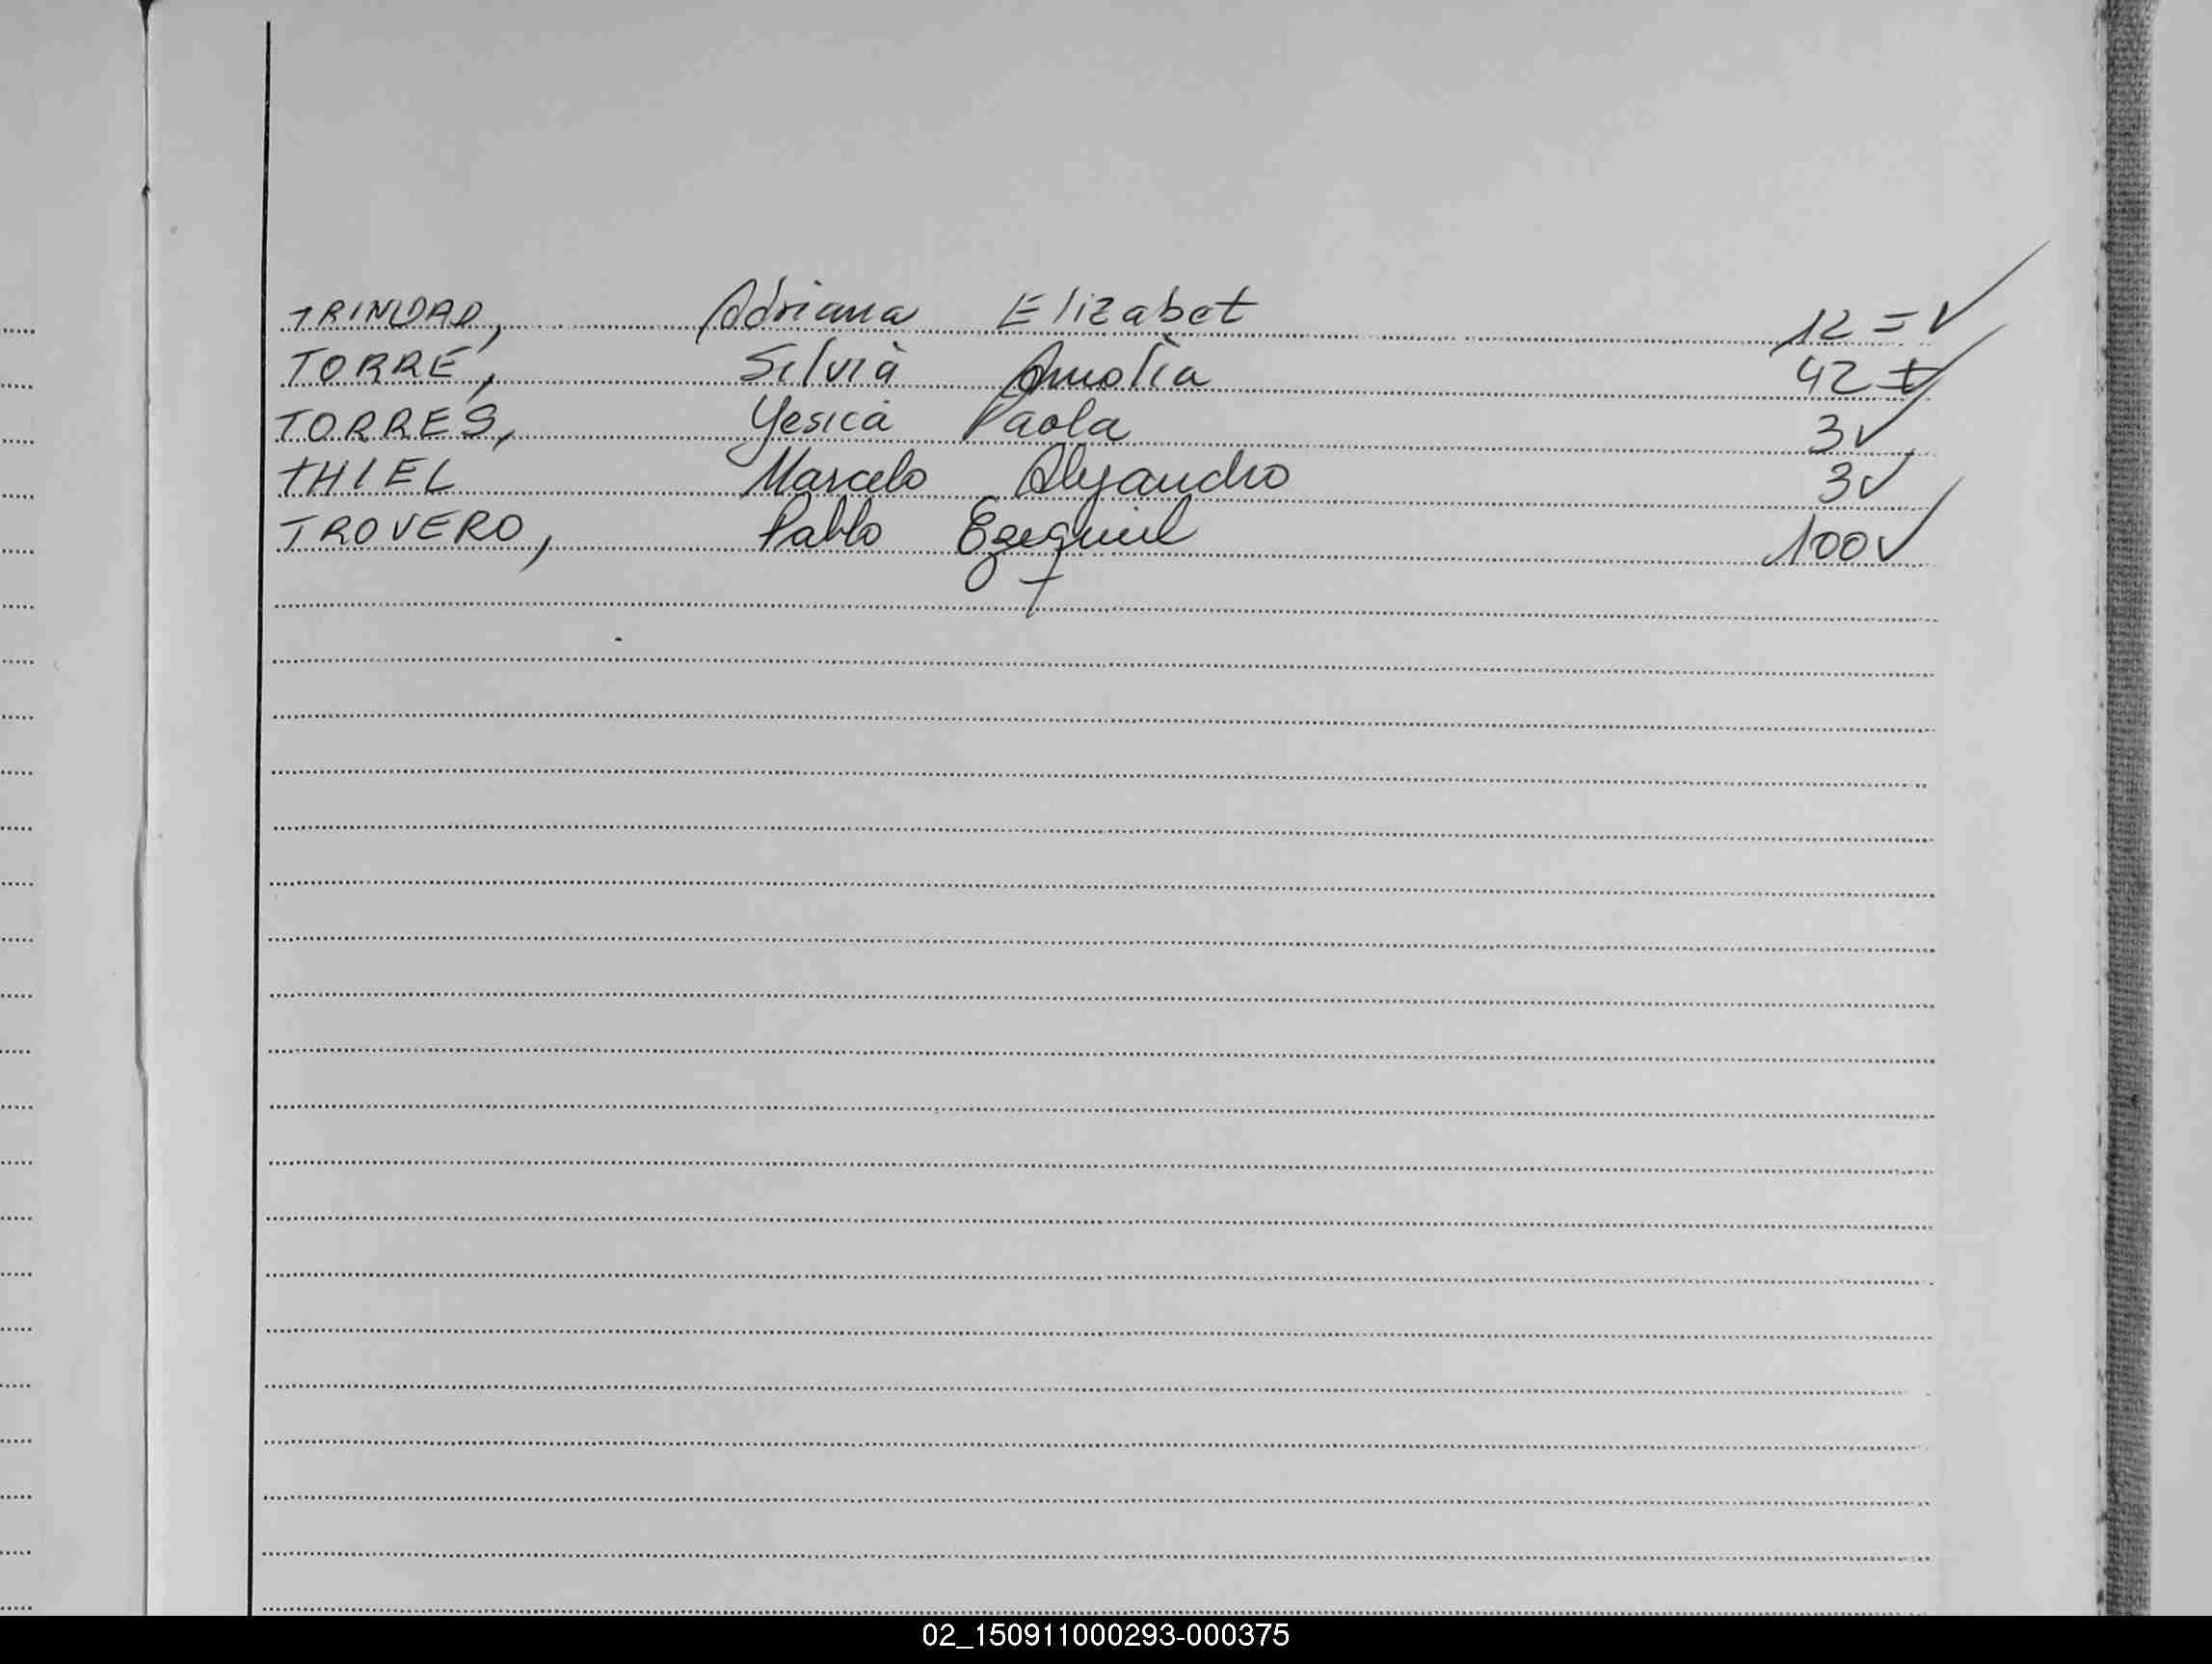 TRINIDAD, Adriana Elizabet 12 = ✓
TORRE, Silvia Amolia 42 ± ✓
TORRES, Yesica Paola 3 ✓
THIEL Marcelo Alejandro 3 ✓
TROVERO, Pablo Ezequiel 100 ✓
02_150911000293-000375